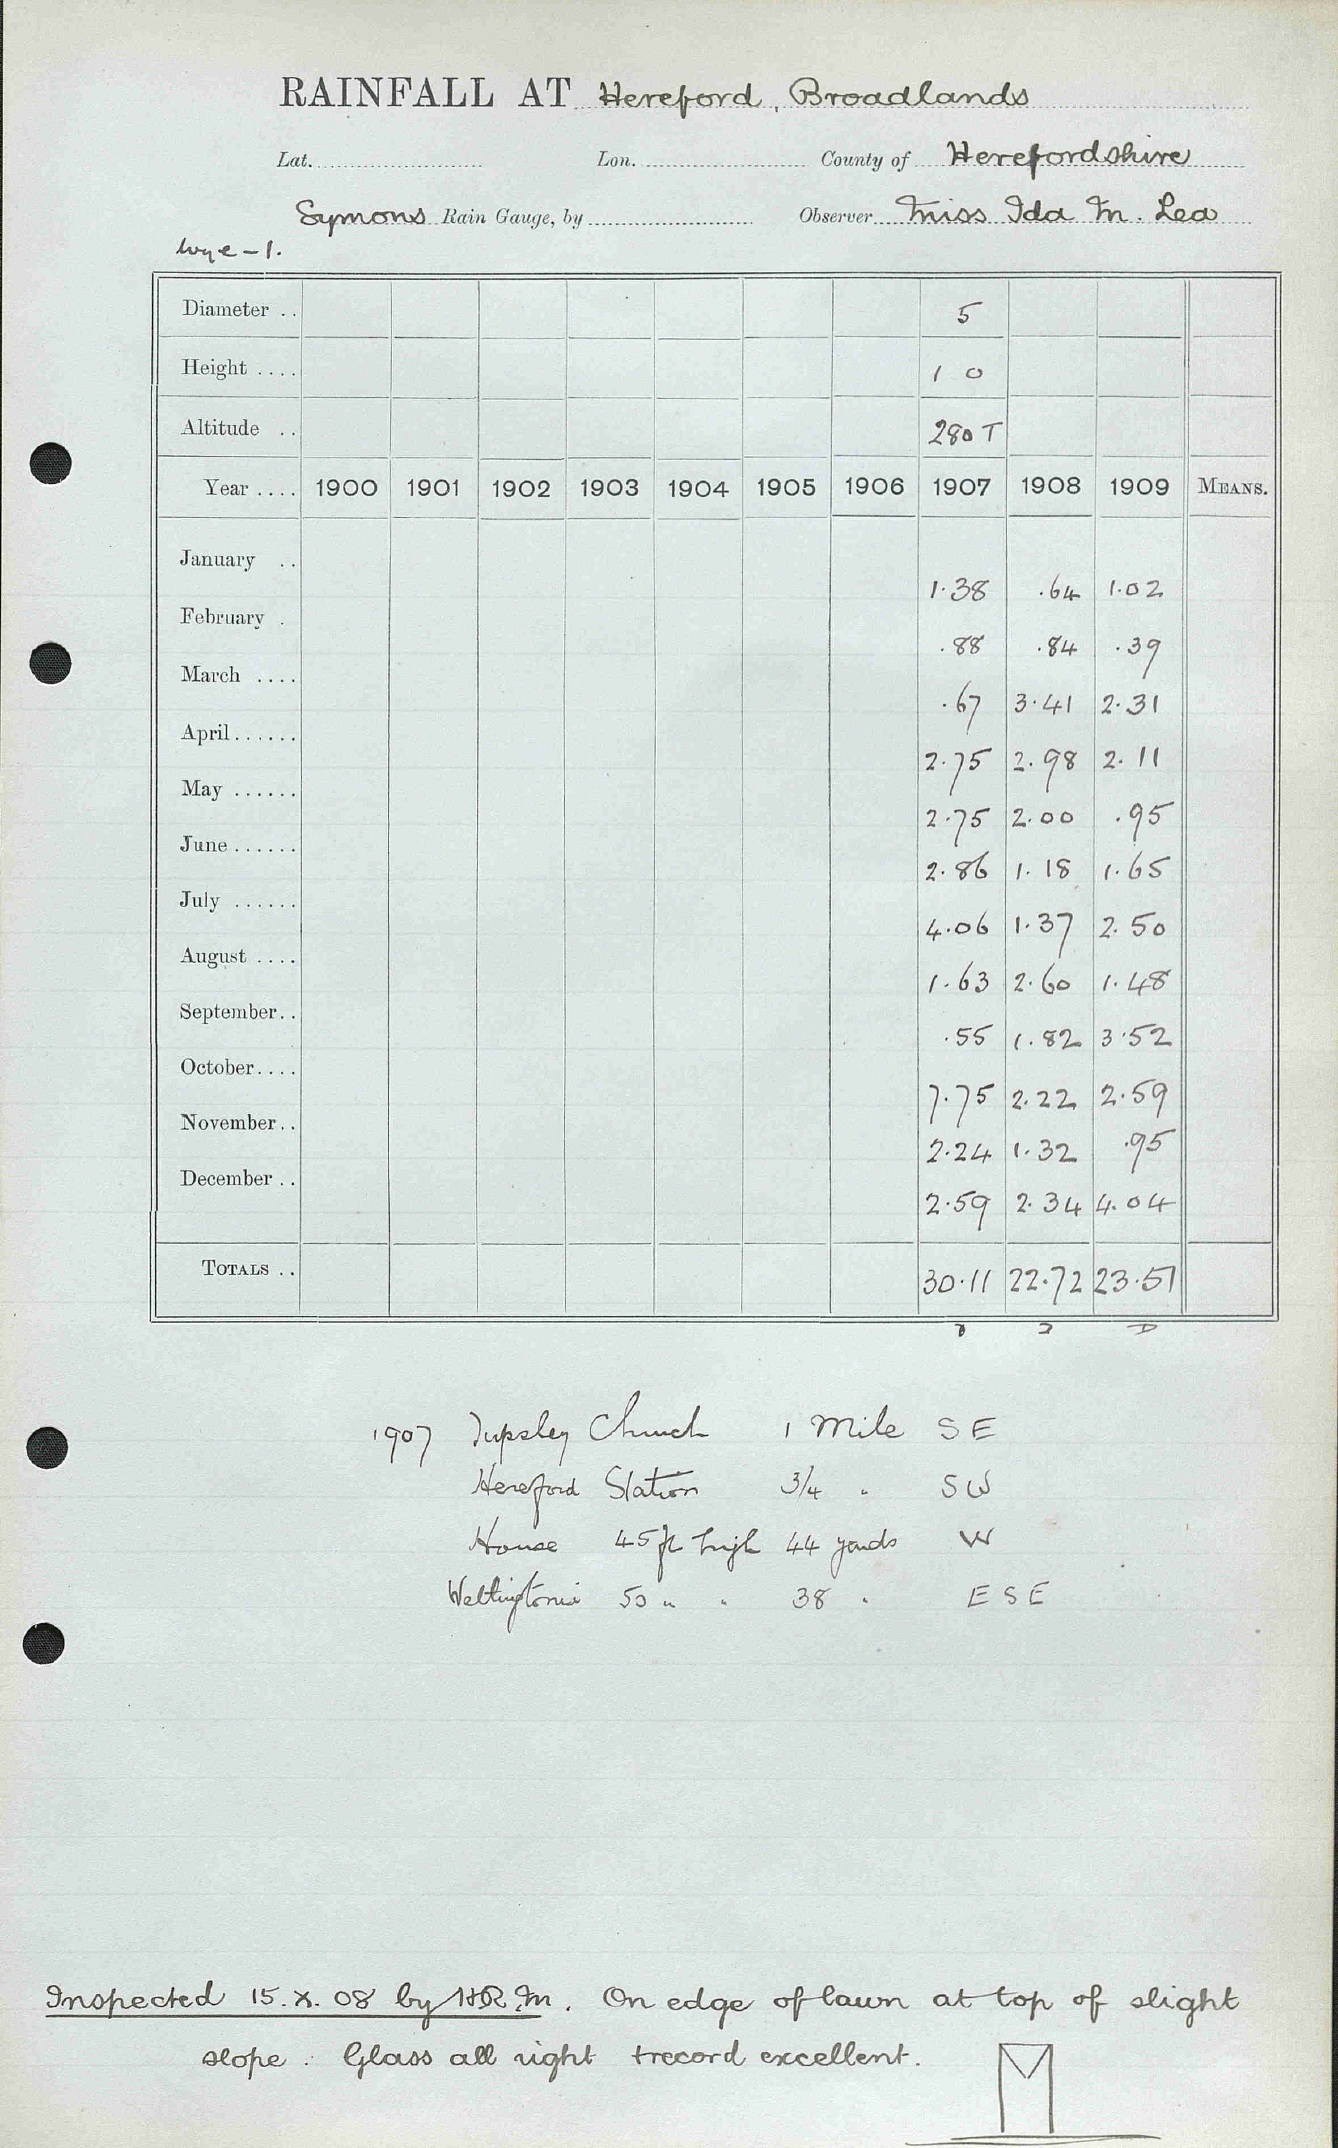 RAINFALL AT Hereford, Broadlands
Lat. Lon. County of Herefordshire
Symons Rain Gauge, by Observer Miss Ida M. Lea
Wye - 1.
Diameter .. 5
Height .... 1 0
Altitude .. 280 T
Year .... 1900 1901 1902 1903 1904 1905 1906 1907 1908 1909 MEANS.
January .. 1.38 .64 1.02
February . .88 .84 .39
March .... .67 3.41 2.31
April...... 2.75 2.98 2.11
May ...... 2.75 2.00 .95
June ...... 2.86 1.18 1.65
July ...... 4.06 1.37 2.50
August .... 1.63 2.60 1.48
September.. .55 1.82 3.52
October.... 7.75 2.22 2.59
November.. 2.24 1.32 .95
December .. 2.59 2.34 4.04
TOTALS .. 30.11 22.72 23.51
1907 Tupsley Church 1 Mile SE
Hereford Station 3/4 " SW
House 45 ft high 44 yards W
Wellingtonia 50 " " 38 " ESE
Inspected 15.X.08 by H.R.M. On edge of lawn at top of slight
slope. Glass all right + record excellent.